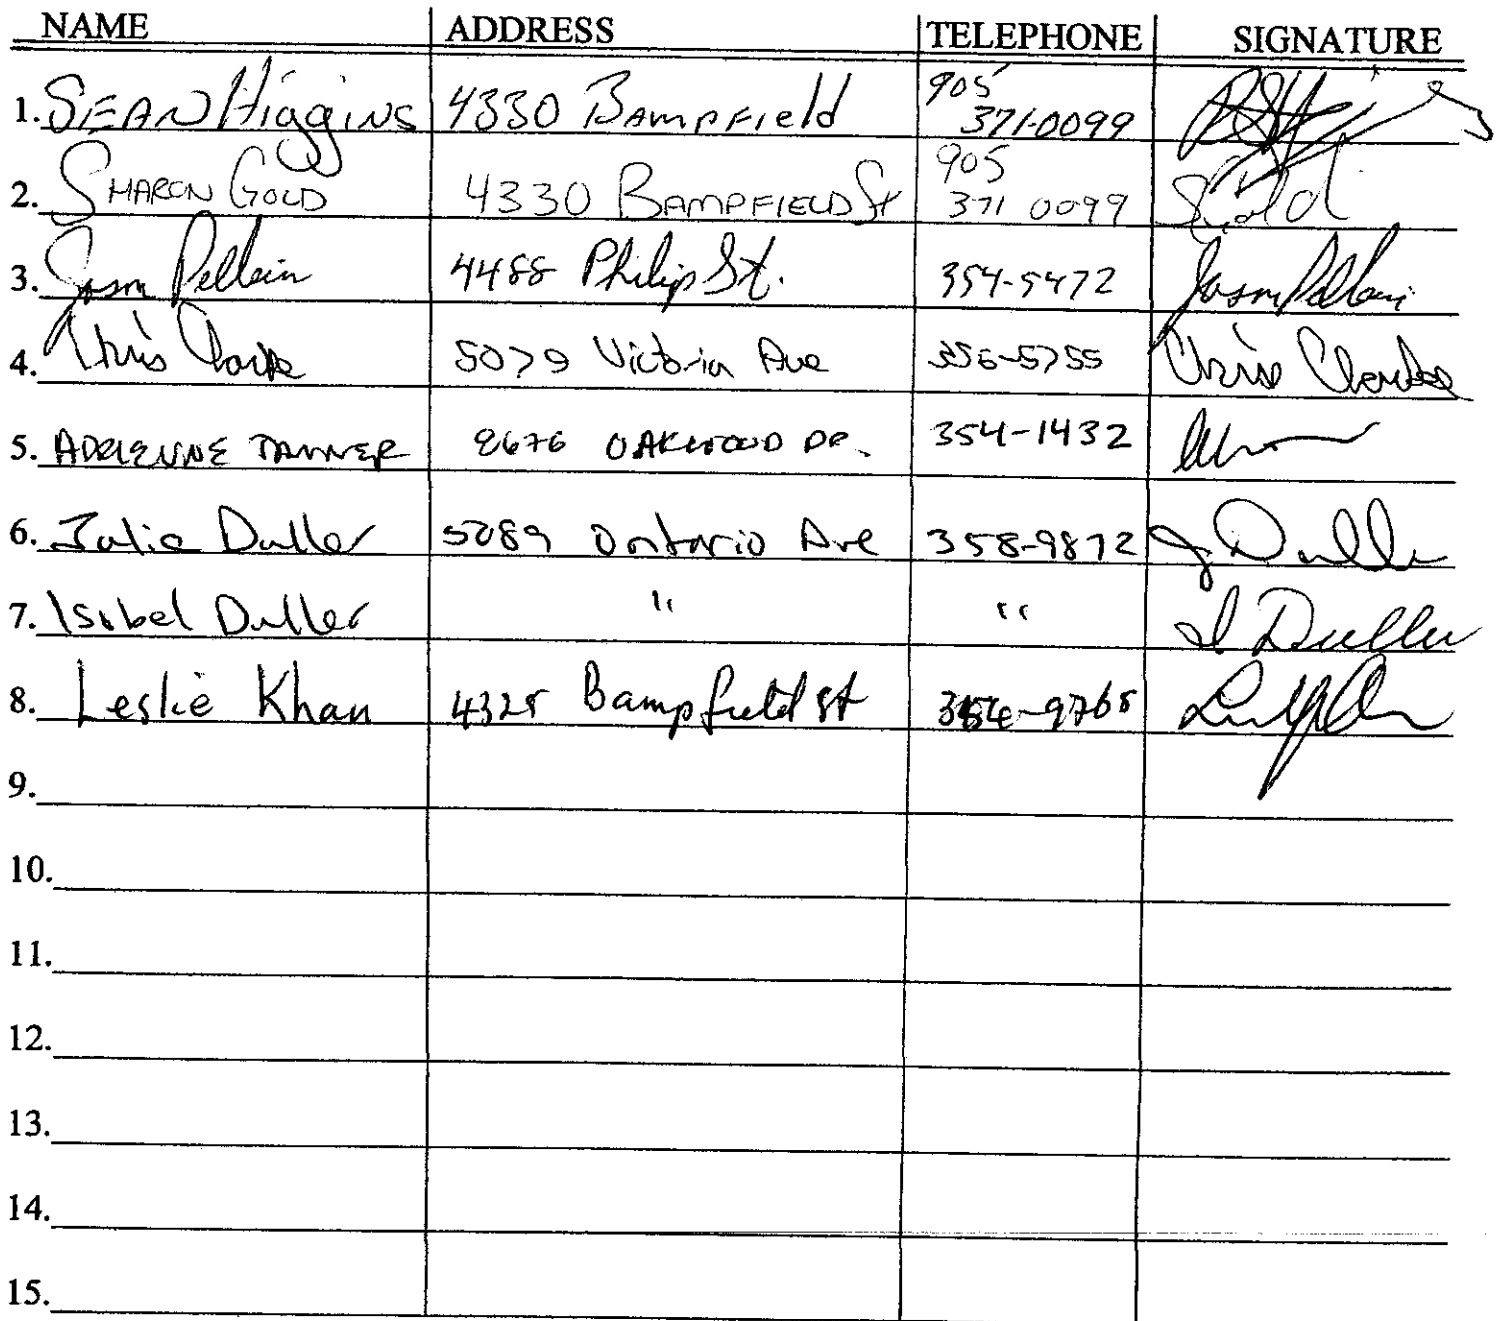 NAME ADDRESS TELEPHONE SIGNATURE
1. SEAN Higgins 4330 BAMPFIELD 905 371-0099
2. SHARON GOLD 4330 BAMPFIELD St 905 371 0099 SGold
3. Jason 4488 Philip St. 354-5472 Jason
4. Chris Clarke 5079 Victoria Ave 356-5755 Chris Clarke
5. ADRIENNE TANNER 8676 OAKWOOD DR. 354-1432
6. Julie Duller 5089 Ontario Ave 358-9872 J Duller
7. Isobel Duller " " I Duller
8. Leslie Khan 4325 Bampfield St
9.
10.
11.
12.
13.
14.
15.